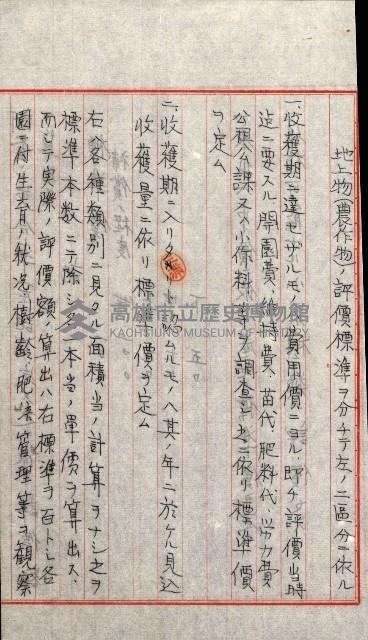 地上物(農作物)ノ評價標準ヲ分チテ左ノ二區分ニ依ル
一、收穫期ニ達セザルモノ費用價ニヨル、即チ評價當時
迄ニ要スル開園費、維持費、苗代、肥料代、労力費
公租公課又ハ小作料等ヲ調査シ之ニ依リ標準價
ヲ定ム
二、收穫期ニ入リタリト認ムルモノハ其ノ年ニ於ケル見込
收穫量ニ依リ標準價ヲ定ム
右各種類別ニ見タル面積當ノ計算ヲナシ之ヲ
標準本數ニテ除シ一本當ノ單價ヲ算出ス、
而シテ實際ノ評價額ノ算出ハ右標準ヲ百トシ各
園ニ付生育ノ狀況、樹齡、肥培管理等ヲ觀察
高雄市立歷史博物館
KAOHSIUNG MUSEUM OF HISTORY